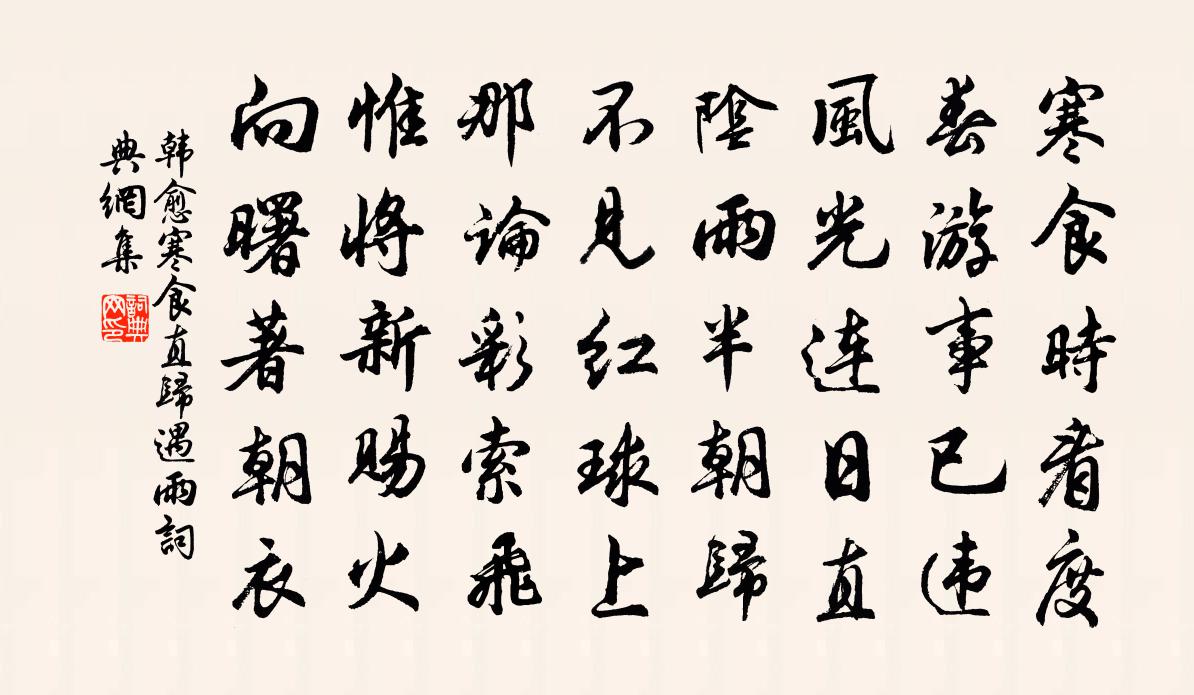 寒食時看度
春游事已违
風光连日直
陰雨半朝歸
不见红球上
那論彩索飛
惟将新賜火
向曙著朝衣
韩愈寒食直歸遇雨詞
典網集
詞典网印